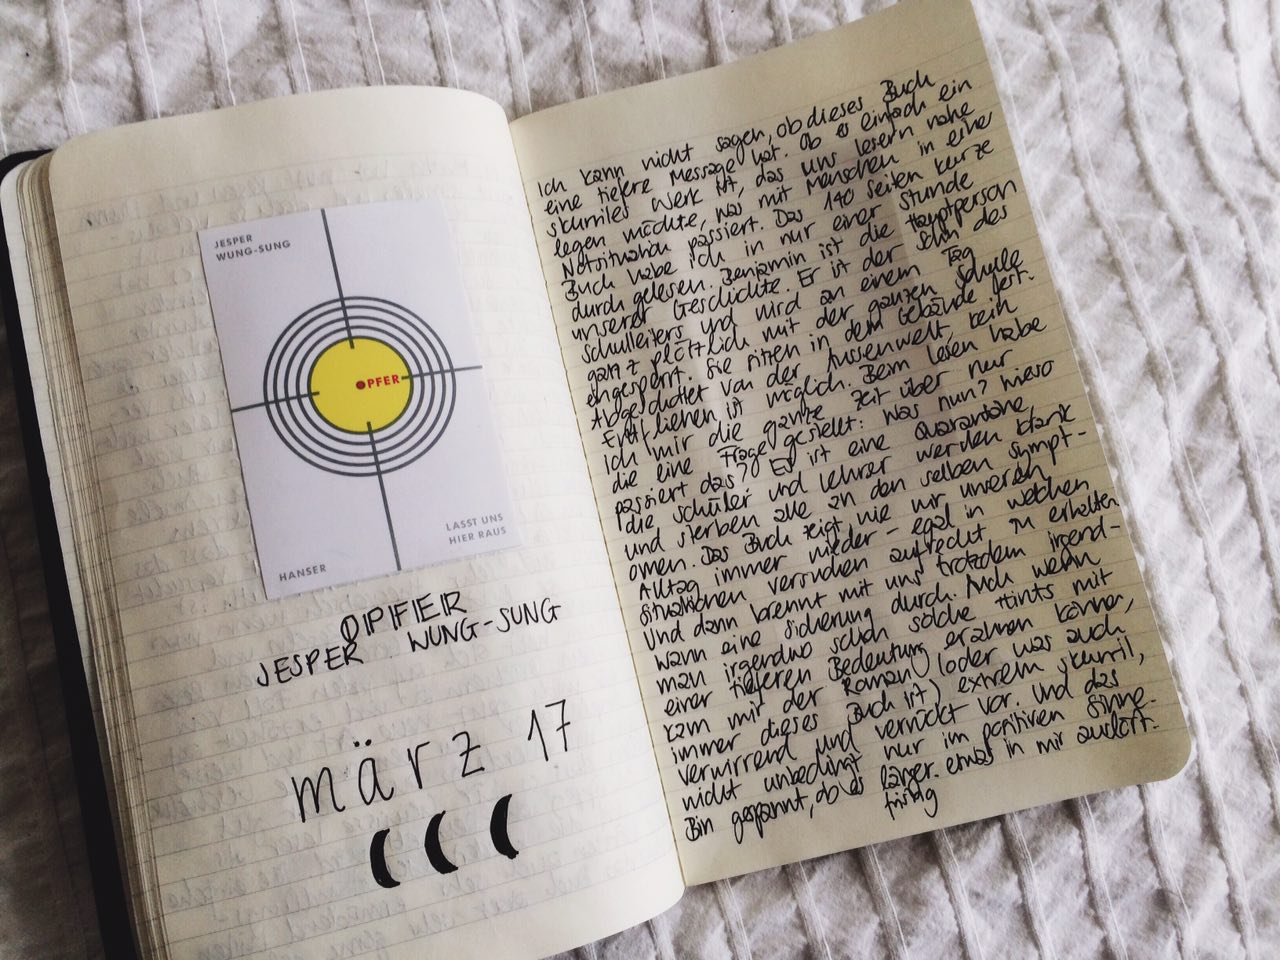 JESPER
WUNG-SUNG
OPFER
LASST UNS
HIER RAUS
HANSER
OPFER
JESPER WUNG-SUNG
märz 17
Ich kann nicht sagen, ob dieses Buch
eine tiefere Message hat. Ob es einfach ein
skurriles Werk ist, das uns Lesern nahe
legen möchte, was mit Menschen in einer
Notsituation passiert. Das 140 seiten kurze
Buch habe ich in nur einer Stunde
durchgelesen. Benjamin ist die Hauptperson
unserer Geschichte. Er ist der Sohn des
Schulleiters und wird an einem Tag
ganz plötzlich mit der ganzen Schule
eingesperrt. Sie sitzen in dem Gebäude fest.
Abgedichtet von der Aussenwelt. Kein
Entfliehen ist möglich. Beim lesen habe
Ich mir die ganze Zeit über nur
die eine Frage gestellt: Was nun? Wieso
passiert das? Es ist eine Quarantäne,
die Schüler und Lehrer werden krank
und sterben alle an den selben Sympt-
omen. Das Buch zeigt wie wir unseren
Alltag immer wieder - egal in welchen
situationen versuchen aufrecht zu erhalten.
Und dann brennt mit uns trotzdem irgend-
wann eine sicherung durch. Auch wenn
man irgendwo schon solche Hints mit
einer tieferen Bedeutung erahnen können,
kam mir der Roman (oder was auch
immer dieses Buch ist) extrem skurril,
verwirrend und verrückt vor. und das
nicht unbedingt nur im positiven Sinne.
Bin gespannt, ob es länger- etwas in mir auslöst.
fristig